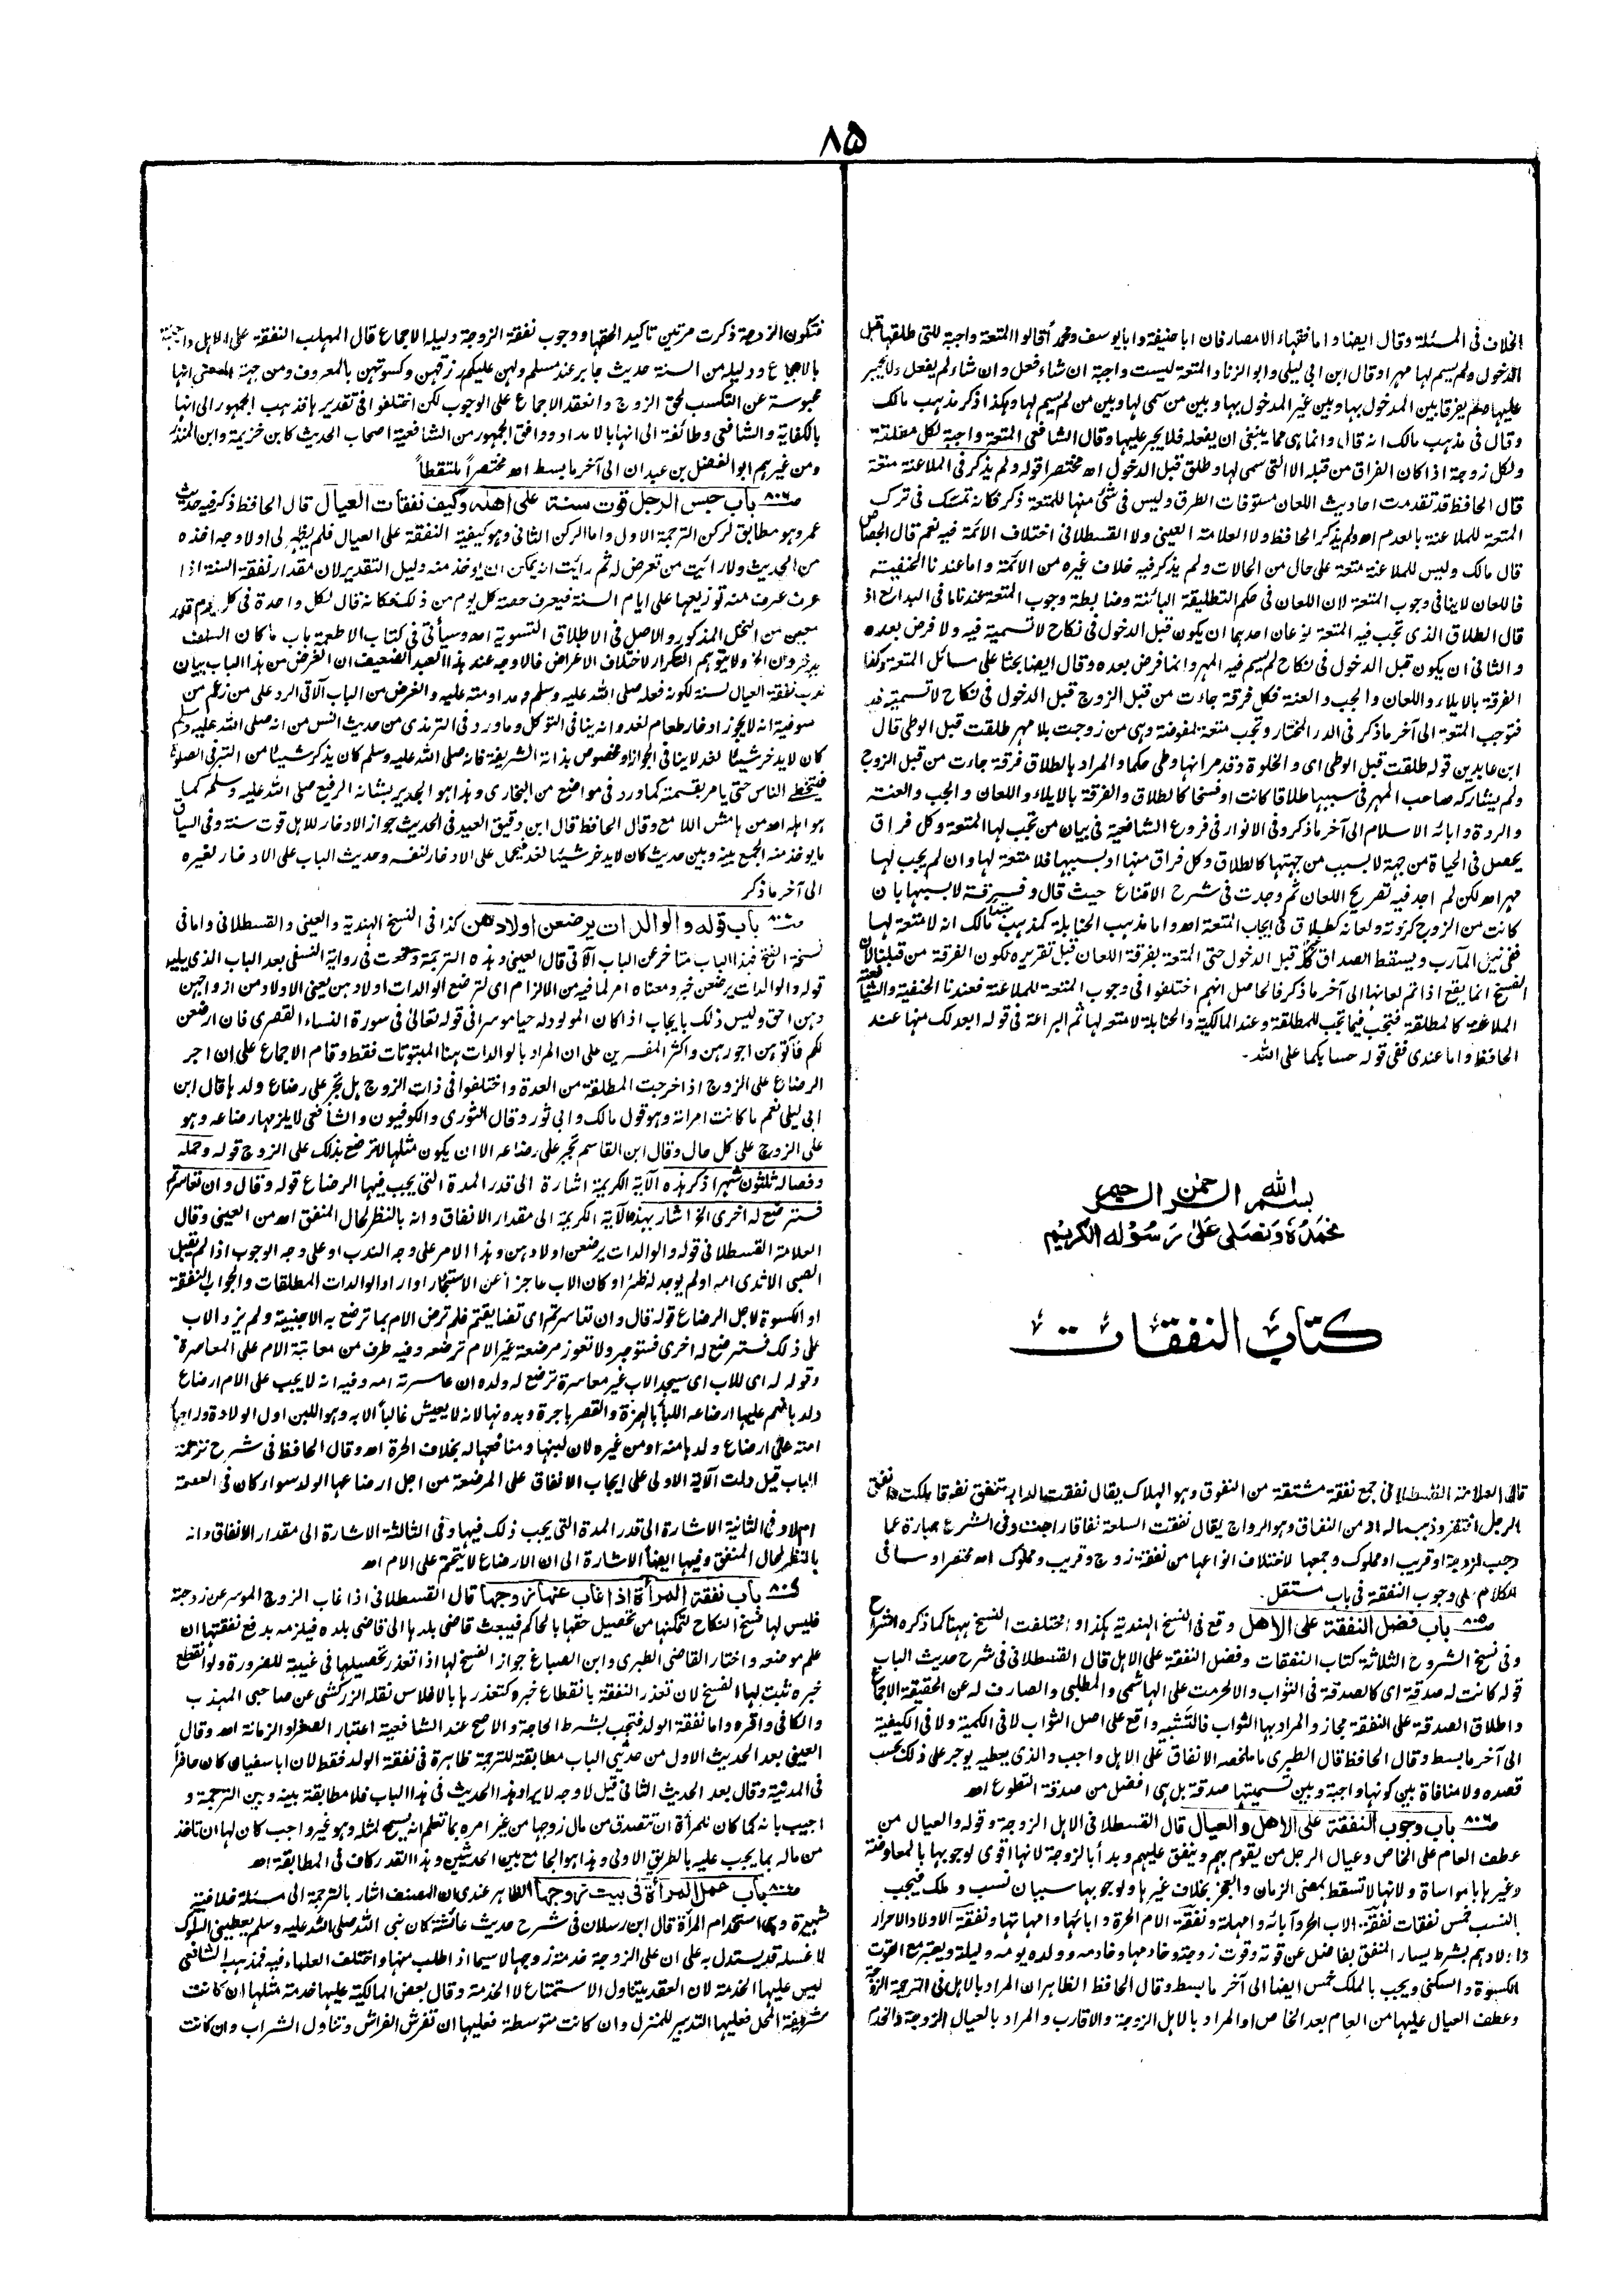 ۸۵
الخلاف فى المسئلة وقال ايضا واما فقهاء الامصار فان ابا حنيفة وابا يوسف ومحمدا قالوا المتعة واجبة للتى طلقها قبل
الدخول ولم يسم لها مهرا وقال ابن ابى ليلى وابو الزناد المتعة ليست واجبة ان شاء فعل وان شاء لم يفعل ولا يجبر
عليها ولم يفرقا بين المدخول بها وبين غير المدخول بها وبين من سمى لها وبين من لم يسم لها وهكذا ذكر مذهب مالك
وقال فى مذهب مالك انه قال وانما هى مما ينبغى ان يفعله فلا يجبر عليها وقال الشافعى المتعة واجبة لكل مطلقة
ولكل زوجة اذا كان الفراق من قبله الا التى سمى لها وطلق قبل الدخول اھ مختصرا قوله ولم يذكر فى الملاعنة متعة
قال الحافظ قد تقدمت احاديث اللعان مستوفات الطرق وليس فى شئ منها للمتعة ذكر فكانه تمسك فى ترك
المتعة للملاعنة بالعدم اھ ولم يذكر الحافظ ولا العلامة العينى ولا القسطلانى اختلاف الائمة فيه نعم قال الجصاص
قال مالك وليس للملاعنة متعة على حال من الحالات ولم يذكر فيه خلاف غيره من الائمة واما عندنا الحنفية
فاللعان لا ينافى وجوب المتعة لان اللعان فى حكم التطليقة البائنة وضابطة وجوب المتعة عندنا ما فى البدائع اذ
قال الطلاق الذى تجب فيه المتعة نوعان احدهما ان يكون قبل الدخول فى نكاح لا تسمية فيه ولا فرض بعده
والثانى ان يكون قبل الدخول فى نكاح لم يسم فيه المهر وانما فرض بعده وقال ايضا بحثا على مسائل المتعة وكذا
الفرقة بالايلاء واللعان والجب والعنة فكل فرقة جاءت من قبل الزوج قبل الدخول فى نكاح لا تسمية فيه
فتوجب المتعة الى آخر ما ذكر فى الدر المختار وتجب متعة لمفوضة وهى من زوجت بلا مهر طلقت قبل الوطى قال
ابن عابدين قوله طلقت قبل الوطى اى والخلوة وقد مر انها وطى حكما والمراد بالطلاق فرقة جاءت من قبل الزوج
ولم يشاركه صاحب المهر فى سببها طلاقا كانت او فسخا كالطلاق والفرقة بالايلاء واللعان والجب والعنة
والردة وابائه الاسلام الى آخر ما ذكر وفى الانوار فى فروع الشافعية فى بيان من تجب لها المتعة وكل فراق
يحصل فى الحياة من جهة لا بسبب من جهتها كالطلاق وكل فراق منها او بسببها فلا متعة لها وان لم يجب لها
مهر اھ لكن لم اجد فيه تصريح اللعان ثم وجدت فى شرح الاقناع حيث قال وفرقة لا بسببها بان
كانت من الزوج كردته ولعانه كطلاق فى ايجاب المتعة اھ واما مذهب الحنابلة كمذهب مالك انه لا متعة لها
ففى نيل المآرب ويسقط الصداق كله قبل الدخول حتى المتعة بفرقة اللعان قبل تقريره لكون الفرقة من قبلها لان
الفسخ انما يقع اذا تم لعانها الى آخر ما ذكر فالحاصل انهم اختلفوا فى وجوب المتعة للملاعنة فعندنا الحنفية والشافعية
الملاعنة كالمطلقة فتجب فيما تجب للمطلقة وعند المالكية والحنابلة لا متعة لها ثم البراعة فى قوله ابعد لك منها عند
الحافظ واما عندى ففى قوله حسابكما على الله ۔
بسم الله الرحمن الرحيم
نحمده ونصلى على رسوله الكريم
كتاب النفقات
قال العلامة القسطلانى جمع نفقة مشتقة من النفوق وهو الهلاك يقال نفقت الدابة تنفق نفوقا هلكت وانفق
الرجل افتقر وذهب ماله او من النفاق وهو الرواج يقال نفقت السلعة نفاقا راجت وفى الشرع عبارة عما
وجب لزوجة او قريب او مملوك وجمعها لاختلاف انواعها من نفقة زوج وقريب ومملوك اھ مختصرا وسيأتى
الكلام على وجوب النفقة فى باب مستقل ۔
باب فضل النفقة على الاهل وقع فى النسخ الهندية هكذا واختلفت النسخ ههنا كما ذكره الشراح
وفى نسخ الشروح الثلاثة كتاب النفقات وفضل النفقة على الاهل قال القسطلانى فى شرح حديث الباب
قوله كانت له صدقة اى كالصدقة فى الثواب والا لحرمت على الهاشمى والمطلبى والصارف له عن الحقيقة الاجماع
واطلاق الصدقة على النفقة مجاز والمراد بها الثواب فالتشبيه واقع على اصل الثواب لا فى الكمية ولا فى الكيفية
الى آخر ما بسط وقال الحافظ قال الطبرى ما ملخصه الانفاق على الاهل واجب والذى يعطيه يوجر على ذلك بحسب
قصده ولا منافاة بين كونها واجبة وبين تسميتها صدقة بل هى افضل من صدقة التطوع اھ
باب وجوب النفقة على الاهل والعيال قال القسطلانى الاهل الزوجة وقوله والعيال من
عطف العام على الخاص وعيال الرجل من يقوم بهم وينفق عليهم وبدأ بالزوجة لانها اقوى لوجوبها بالمعاوضة
وغيرها بالمواساة ولانها لا تسقط بمضى الزمان والعجز بخلاف غيرها ولوجوبها سببان نسب وملك فيجب
بالنسب خمس نفقات نفقة الاب الحر وآبائه وامهاته ونفقة الام الحرة وآبائها وامهاتها ونفقة الاولاد الاحرار
واولادهم بشرط يسار المنفق بفاضل عن قوته وقوت زوجته وخادمها وخادمه وولده يومه وليلة ويعتبر مع القوت
الكسوة والسكنى ويجب بالملك خمس ايضا الى آخر ما بسط وقال الحافظ الظاهر ان المراد بالاهل فى الترجمة الزوجة
وعطف العيال عليها من العام بعد الخاص او المراد بالاهل الزوجة والاقارب والمراد بالعيال الزوجة والخدم
فتكون الزوجة ذكرت مرتين تاكيدا لحقها ووجوب نفقة الزوجة دليله الاجماع قال المهلب النفقة على الاهل واجبة
بالاجماع ودليله من السنة حديث جابر عند مسلم ولهن عليكم رزقهن وكسوتهن بالمعروف ومن جهة المعنى انها
محبوسة عن التكسب لحق الزوج وانعقد الاجماع على الوجوب لكن اختلفوا فى تقديرها فذهب الجمهور الى انها
بالكفاية والشافعى وطائفة الى انها بالامداد ووافق الجمهور من الشافعية اصحاب الحديث كابن خزيمة وابن المنذر
ومن غيرهم ابو الفضل بن عبدان الى آخر ما بسط اھ مختصراً ملتقطاً
باب حبس الرجل قوت سنة على اهله وكيف نفقات العيال قال الحافظ ذكر فيه حديث
عمر وهو مطابق لركن الترجمة الاول واما الركن الثانى وهو كيفية النفقة على العيال فلم يظهر لى اولا وجه اخذه
من الحديث ولا رائيت من تعرض له ثم رائيت انه يمكن ان يوخذ منه دليل التقدير لان مقدار نفقة السنة اذا
عرف عرف منه توزيعها على ايام السنة فيعرف حصة كل يوم من ذلك فكانه قال لكل واحدة فى كل يوم قدر
معين من النخل المذكور والاصل فى الاطلاق التسوية اھ وسيأتى فى كتاب الاطعمة باب ما كان السلف
يدخرون الخ ولا يتوهم التكرار لاختلاف الاغراض فالاوجه عند هذا العبد الضعيف ان الغرض من هذا الباب بيان
ندب نفقة العيال لسنة لكونه فعله صلى الله عليه وسلم ومداومته عليه والغرض من الباب الآتى الرد على من زعم من
صوفية انه لا يجوز ادخار طعام لغد وانه ينافى التوكل وما ورد فى الترمذى من حديث انس من انه صلى الله عليه وسلم
كان لا يدخر شيئا لغد لا ينافى الجواز او مخصوص بذاته الشريفة فانه صلى الله عليه وسلم كان يذكر شيئا من التبر فى الصلوة
فيتخطى الناس حتى يامر بقسمته كما ورد فى مواضع من البخارى وهذا هو الجدير بشانه الرفيع صلى الله عليه وسلم كما
هو اهله اھ من هامش اللامع وقال الحافظ قال ابن دقيق العيد فى الحديث جواز الادخار للاهل قوت سنة وفى السياق
ما يوخذ منه الجمع بينه وبين حديث كان لا يدخر شيئا لغد فيحمل على الادخار لنفسه وحديث الباب على الادخار لغيره
الى آخر ما ذكر
باب قوله والوالدات يرضعن اولادهن كذا فى النسخ الهندية والعينى والقسطلانى واما فى
نسخة الفتح فهذا الباب متاخر عن الباب الآتى قال العينى وهذه الترجمة وقعت فى رواية النسفى بعد الباب الذى يليه
قوله والوالدات يرضعن خبر ومعناه امر لما فيه من الالزام اى لترضع الوالدات اولادهن يعنى الاولاد من ازواجهن
وهن احق وليس ذلك بايجاب اذا كان المولود له حيا موسرا فى قوله تعالىٰ فى سورة النساء القصرى فان ارضعن
لكم فآتوهن اجورهن واكثر المفسرين على ان المراد بالوالدات هنا المبتوتات فقط وقام الاجماع على ان اجر
الرضاع على الزوج اذا خرجت المطلقة من العدة واختلفوا فى ذات الزوج هل تجبر على رضاع ولدها قال ابن
ابى ليلى نعم ما كانت امرأته وهو قول مالك وابى ثور وقال الثورى والكوفيون والشافعى لا يلزمها رضاعه وهو
على الزوج على كل حال وقال ابن القاسم تجبر على رضاعه الا ان يكون مثلها لا ترضع فذلك على الزوج قوله وحمله
وفصاله ثلثون شهرا ذكر هذه الآية الكريمة اشارة الى قدر المدة التى يجب فيها الرضاع قوله وقال وان تعاسرتم
فسترضع له اخرى الخ اشار بهذه الآية الكريمة الى مقدار الانفاق وانه بالنظر لحال المنفق اھ من العينى وقال
العلامة القسطلانى قوله والوالدات يرضعن اولادهن وهذا الامر على وجه الندب او على وجه الوجوب اذا لم يقبل
الصبى الا ثدى امه او لم يوجد له ظئر او كان الاب عاجزاً عن الاستيجار او اراد الوالدات المطلقات وايجاب النفقة
او الكسوة لاجل الرضاع قوله قال وان تعاسرتم اى تضايقتم فلم ترض الام بما ترضع به الاجنبية ولم يزد الاب
على ذلك فسترضع له اخرى فستوجد ولا تعوز مرضعة غير الام ترضعه وفيه طرف من معاتبة الام على المعاسرة
وقوله له اى للاب اى سيجد الاب غير معاسرة ترضع له ولده ان عاسرته امه وفيه انه لا يجب على الام ارضاع
ولدها نعم عليها ارضاعه اللبأ بالهمزة والقصر باجرة وبدونها لانه لا يعيش غالباً الا به وهو اللبن اول الولادة وله اجبار
امته على ارضاع ولدها منه او من غيره لان لبنها ومنافعها له بخلاف الحرة اھ وقال الحافظ فى شرح ترجمة
الباب قيل دلت الآية الاولى على ايجاب الانفاق على المرضعة من اجل ارضاعها الولد سواء كان فى العصمة
ام لا وفى الثانية الاشارة الى قدر المدة التى يجب ذلك فيها وفى الثالثة الاشارة الى مقدار الانفاق وانه
بالنظر لحال المنفق وفيها ايضاً الاشارة الى ان الارضاع لا يتحتم على الام اھ
باب نفقة المرأة اذا غاب عنها زوجها قال القسطلانى اذا غاب الزوج الموسر عن زوجته
فليس لها فسخ النكاح لتمكنها من تحصيل حقها بالحاكم فيبعث قاضى بلدها الى قاضى بلده فيلزمه بدفع نفقتها ان
علم موضعه واختار القاضى الطبرى وابن الصباغ جواز الفسخ لها اذا تعذر تحصيلها فى غيبته للضرورة ولو انقطع
خبره ثبت لها الفسخ لان تعذر النفقة بانقطاع خبره كتعذرها بالافلاس نقله الزركشى عن صاحبى المهذب
والكافى واقره واما نفقة الولد فتجب بشرط الحاجة والاصح عند الشافعية اعتبار الصغر او الزمانة اھ وقال
العينى بعد الحديث الاول من حديثى الباب مطابقته للترجمة ظاهرة فى نفقة الولد فقط لان ابا سفيان كان حاضراً
فى المدينة وقال بعد الحديث الثانى قيل لا وجه لايراد هذا الحديث فى هذا الباب فلا مطابقة بينه وبين الترجمة و
اجيب بانه كما كان للمرأة ان تتصدق من مال زوجها من غير امره بما تعلم انه يسمح لمثله وهو غير واجب كان لها ان تاخذ
من ماله بما يجب عليه بالطريق الاولى وهذا هو الجامع بين الحديثين وهذا القدر كاف فى المطابقة اھ
باب عمل المرأة فى بيت زوجها الظاهر عندى ان المصنف اشار بالترجمة الى مسئلة خلافية
شهيرة وهى استخدام المرأة قال ابن رسلان فى شرح حديث عائشة كان نبى الله صلى الله عليه وسلم يعطينى السواك
لاغسله قد يستدل به على ان على الزوجة خدمة زوجها لا سيما اذا طلب منها واختلف العلماء فيه فمذهب الشافعى
ليس عليها الخدمة لان العقد يتناول الاستمتاع لا الخدمة وقال بعض المالكية عليها خدمة مثلها ان كانت
شريفة المحل فعليها التدبير للمنزل وان كانت متوسطة فعليها ان تفرش الفراش وتناول الشراب وان كانت